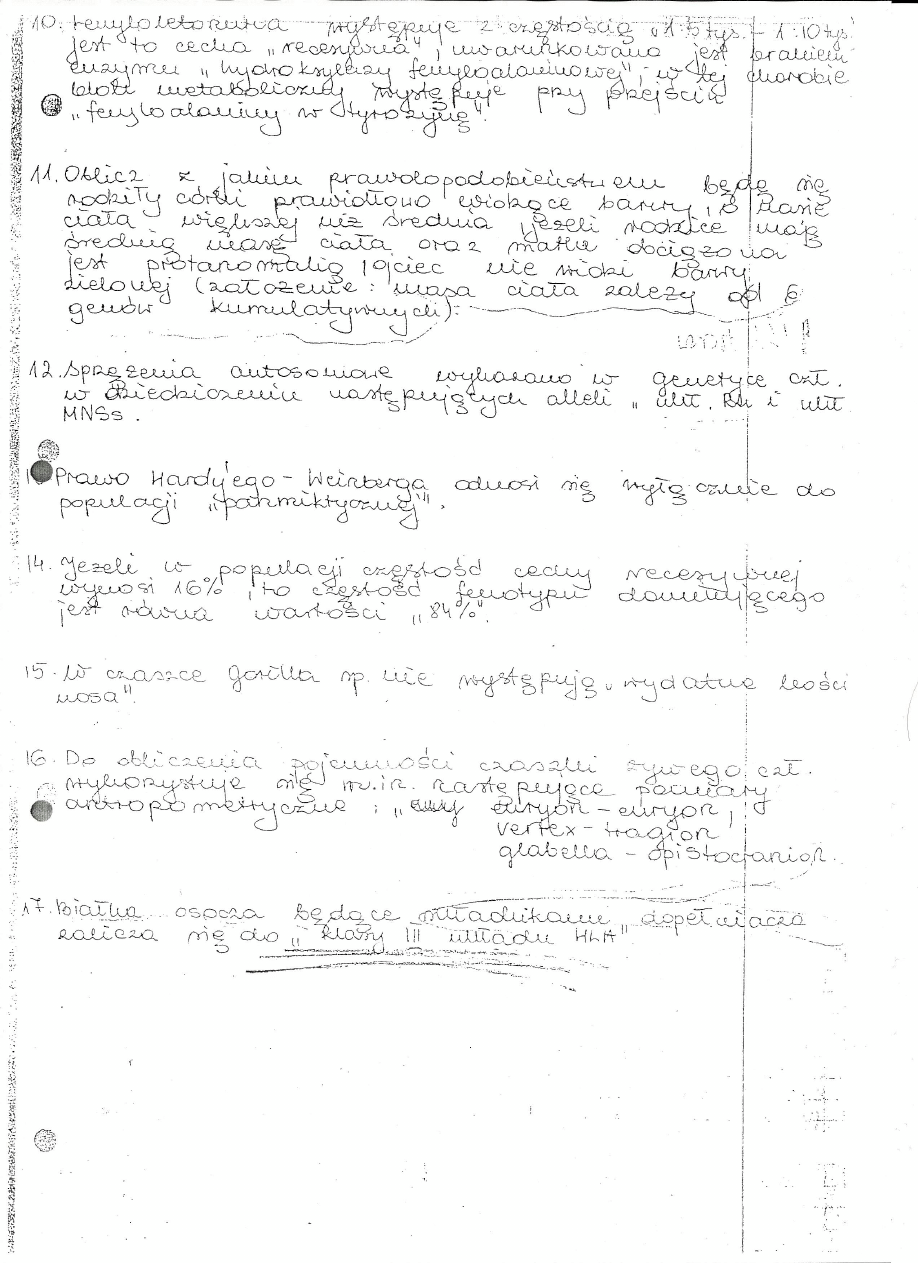 10. Fenyloketonuria występuje z częstością „1:5 tys. - 1:10 tyś."
jest to cecha „recesywna", uwarunkowana jest brakiem
enzymu „hydroksylazy fenyloalaninowej", w tej chorobie
blok metaboliczny występuje przy przejściu
„fenyloalaniny w tyrozynę".
11. Oblicz z jakim prawdopodobieństwem będą się
rodziły córki prawidłowo widzące barwy, o masie
ciała większej niż średnia, jeżeli rodzice mają
średnią masę ciała oraz matka obciążona
jest protanomalią, ojciec nie widzi barwy
zielonej (założenie: masa ciała zależy od 6
genów kumulatywnych).
12. Sprzężenia autosomowe wykazano w genetyce czł.
w dziedziczeniu następujących alleli „ukł. Rh i ukł
MNSs.
Prawo Hardy'ego - Weinberga odnosi się wyłącznie do
populacji „panmiktycznej".
14. Jeżeli w populacji częstość cechy recesywnej
wynosi 16%, to częstość fenotypu dominującego
jest równa wartości „84%".
15. W czaszce Gorilla sp. nie występują „wydatne kości
nosa".
16. Do obliczenia pojemności czaszki żywego czł.
wykorzystuje się m.in. następujące pomiary
antropometryczne: „euryon - euryon,
vertex - tragion
glabella - opistocranion.
17. Białka osocza będące składnikami dopełniacza
zalicza się do „klasy III układu HLA"